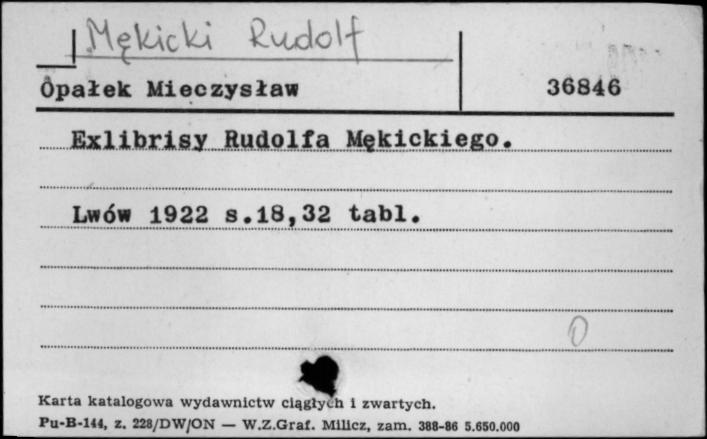 Mękicki Rudolf
Opałek Mieczysław 36846
Exlibrisy Rudolfa Mękickiego.
Lwów 1922 s.18,32 tabl.
0
Karta katalogowa wydawnictw ciągłych i zwartych.
Pu-B-144, z. 228/DW/ON — W.Z.Graf. Milicz, zam. 388-86 5.650.000